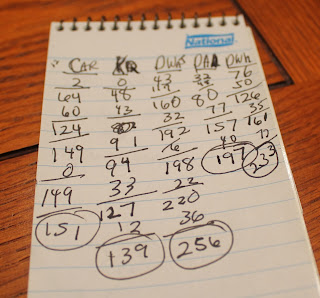 National
CAR DWh
2 0 43 76
64 48 117 50
60 43 160 80 126
124 32 77 35
149 91 192 157 161
0 94 6 40 72
149 33 198 197 233
151 127 22
12 220
139 36
256